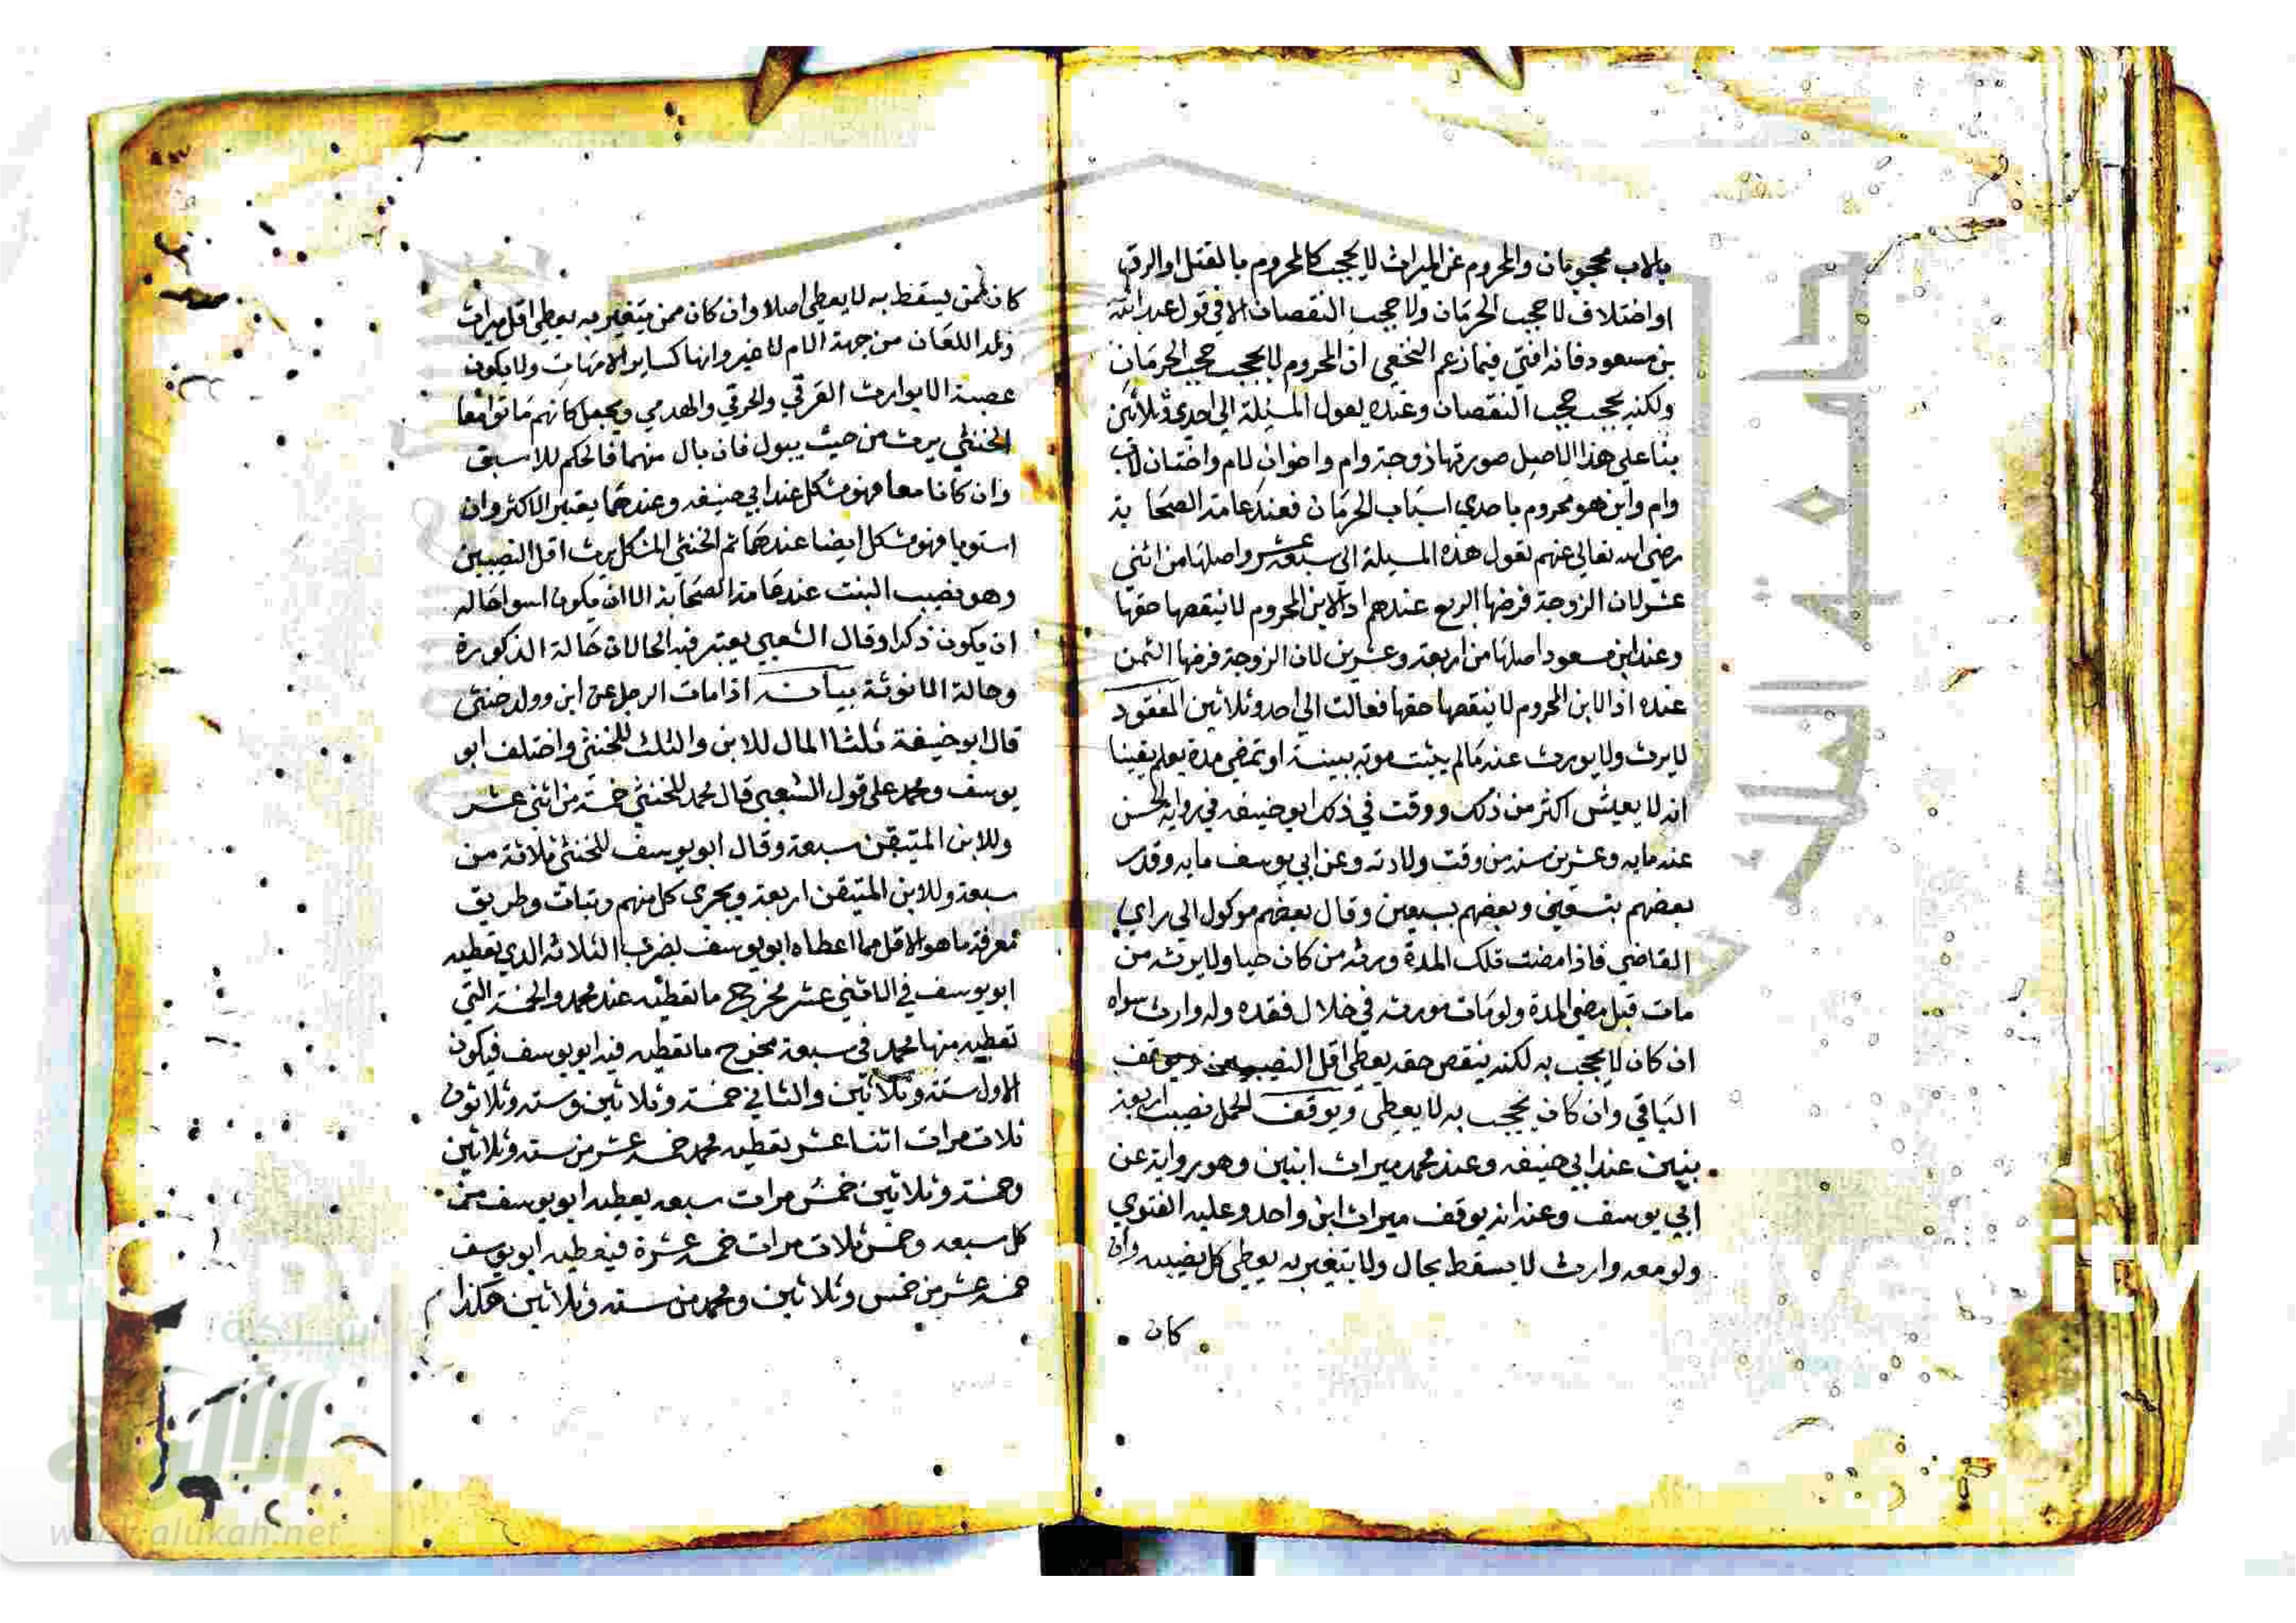 بالاب محجوبان والمحروم عن الميراث لا يحجب كالمحروم بالقتل والرق
او اختلاف لا حجب الحرمان ولا حجب النقصان الا في قول عبد الله
بن مسعود فانه افتى فيما زعم النخعي ان المحروم لا يحجب حجب الحرمان
ولكنه يحجب حجب النقصان وعنده يعول المسئلة الى احدى وثلاثين
بنا على هذا الاصل صورتها زوجة وام واخوان لام واختان لاب
وام وابن هو محروم باحدي اسباب الحرمان فعند عامة الصحابة
رضي الله تعالى عنهم تعول هذه المسيلة الى سبعة عشر واصلها من اثني
عشر لان الزوجة فرضها الربع عندهم اذ الابن المحروم لا ينقصها حقها
وعند ابن مسعود اصلها من اربعة وعشرين لان الزوجة فرضها الثمن
عنده اذ الابن المحروم لا ينقصها حقها فعالت الى احد وثلاثين المفقود
لا يرث ولا يورث عنه مالم يثبت موته ببينة او تمضي مدة يعلم يقينا
انه لا يعيش اكثر من ذلك ووقت في ذلك ابو حنيفه في رواية الحسن
عنه مايه وعشرين سنه من وقت ولادته وعن ابي يوسف مايه وقدر
بعضهم بتسعين وبعضهم بسبعين وقال بعضهم موكول الى راي
القاضي فاذا مضت تلك المدة ورثه من كان حيا ولا يرث من
مات قبل مضي المدة ولو مات مورثه في خلال فقده وله وارث سواه
ان كان لا يحجب به لكنه ينقص حقه يعطي اقل النصيبين ويوقف
الباقي وان كان يحجب به لا يعطى ويوقف للحمل نصيب اربعة
بنين عند ابي حنيفه وعند محمد ميراث ابنين وهو رواية عن
ابي يوسف وعنه انه يوقف ميراث ابن واحد وعليه الفتوي
ولو معه وارث لا يسقط بحال ولا يتغير به يعطى كل نصيبه وان
كان
كان ممن يسقط به لا يعطى اصلا وان كان ممن يتغير به يعطى اقل ميراث
ولد اللعان من جهة الام لا غير وانها كساير الامهات ولا يكون
عصبة الا بوارث الغرقي والحرقي والهدمي ويجعل كانهم ماتوا معا
الخنثي يرث من حيث يبول فان بال منهما فالحكم للاسبق
وان كانا معا فهو مشكل عند ابي حنيفه وعندهما يعتبر الاكثر وان
استويا فهو مشكل ايضا عندهما ثم الخنثى المشكل يرث اقل النصيبين
وهو نصيب البنت عند عامة الصحابة الا ان يكون اسوا حاله
ان يكون ذكرا وقال الشعبي يعتبر فيه الحالان حالة الذكورة
وحالة الانوثة بيانه اذا مات الرجل عن ابن وولد خنثى
قال ابو حنيفة ثلثا المال للابن والثلث للخنثى واختلف ابو
يوسف ومحمد على قول الشعبي قال محمد للخنثى خمسة من اثني عشر
وللابن المتيقن سبعة وقال ابو يوسف للخنثى ثلاثة من
سبعة وللابن المتيقن اربعة ويجرى كل منهم وطريق
معرفة ما هو الاقل مما اعطاه ابو يوسف بضرب الثلاثة الذي تعطيه
ابو يوسف في الاثني عشر مخرج ما تعطيه عند محمد والخمسة التي
تعطيه منها محمد في سبعة مخرج ما تعطيه فيه ابو يوسف فيكون
الاول ستة وثلاثين والثاني خمسة وثلاثين وسته وثلاثون
ثلاث مرات اثنا عشر يعطيه محمد خمسة عشر من سته وثلاثين
وخمسة وثلاثين خمس مرات سبعه يعطيه ابو يوسف من
كل سبعه وخمس ثلاث مرات خمسة عشرة فيعطيه ابو يوسف
خمسة عشر من خمس وثلاثين ومحمد من سته وثلاثين هكذا
شبكة
الألوكة
www.alukah.net